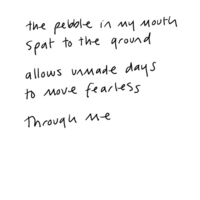 the pebble in my mouth
spat to the ground
allows unmade days
to move fearless
Through me